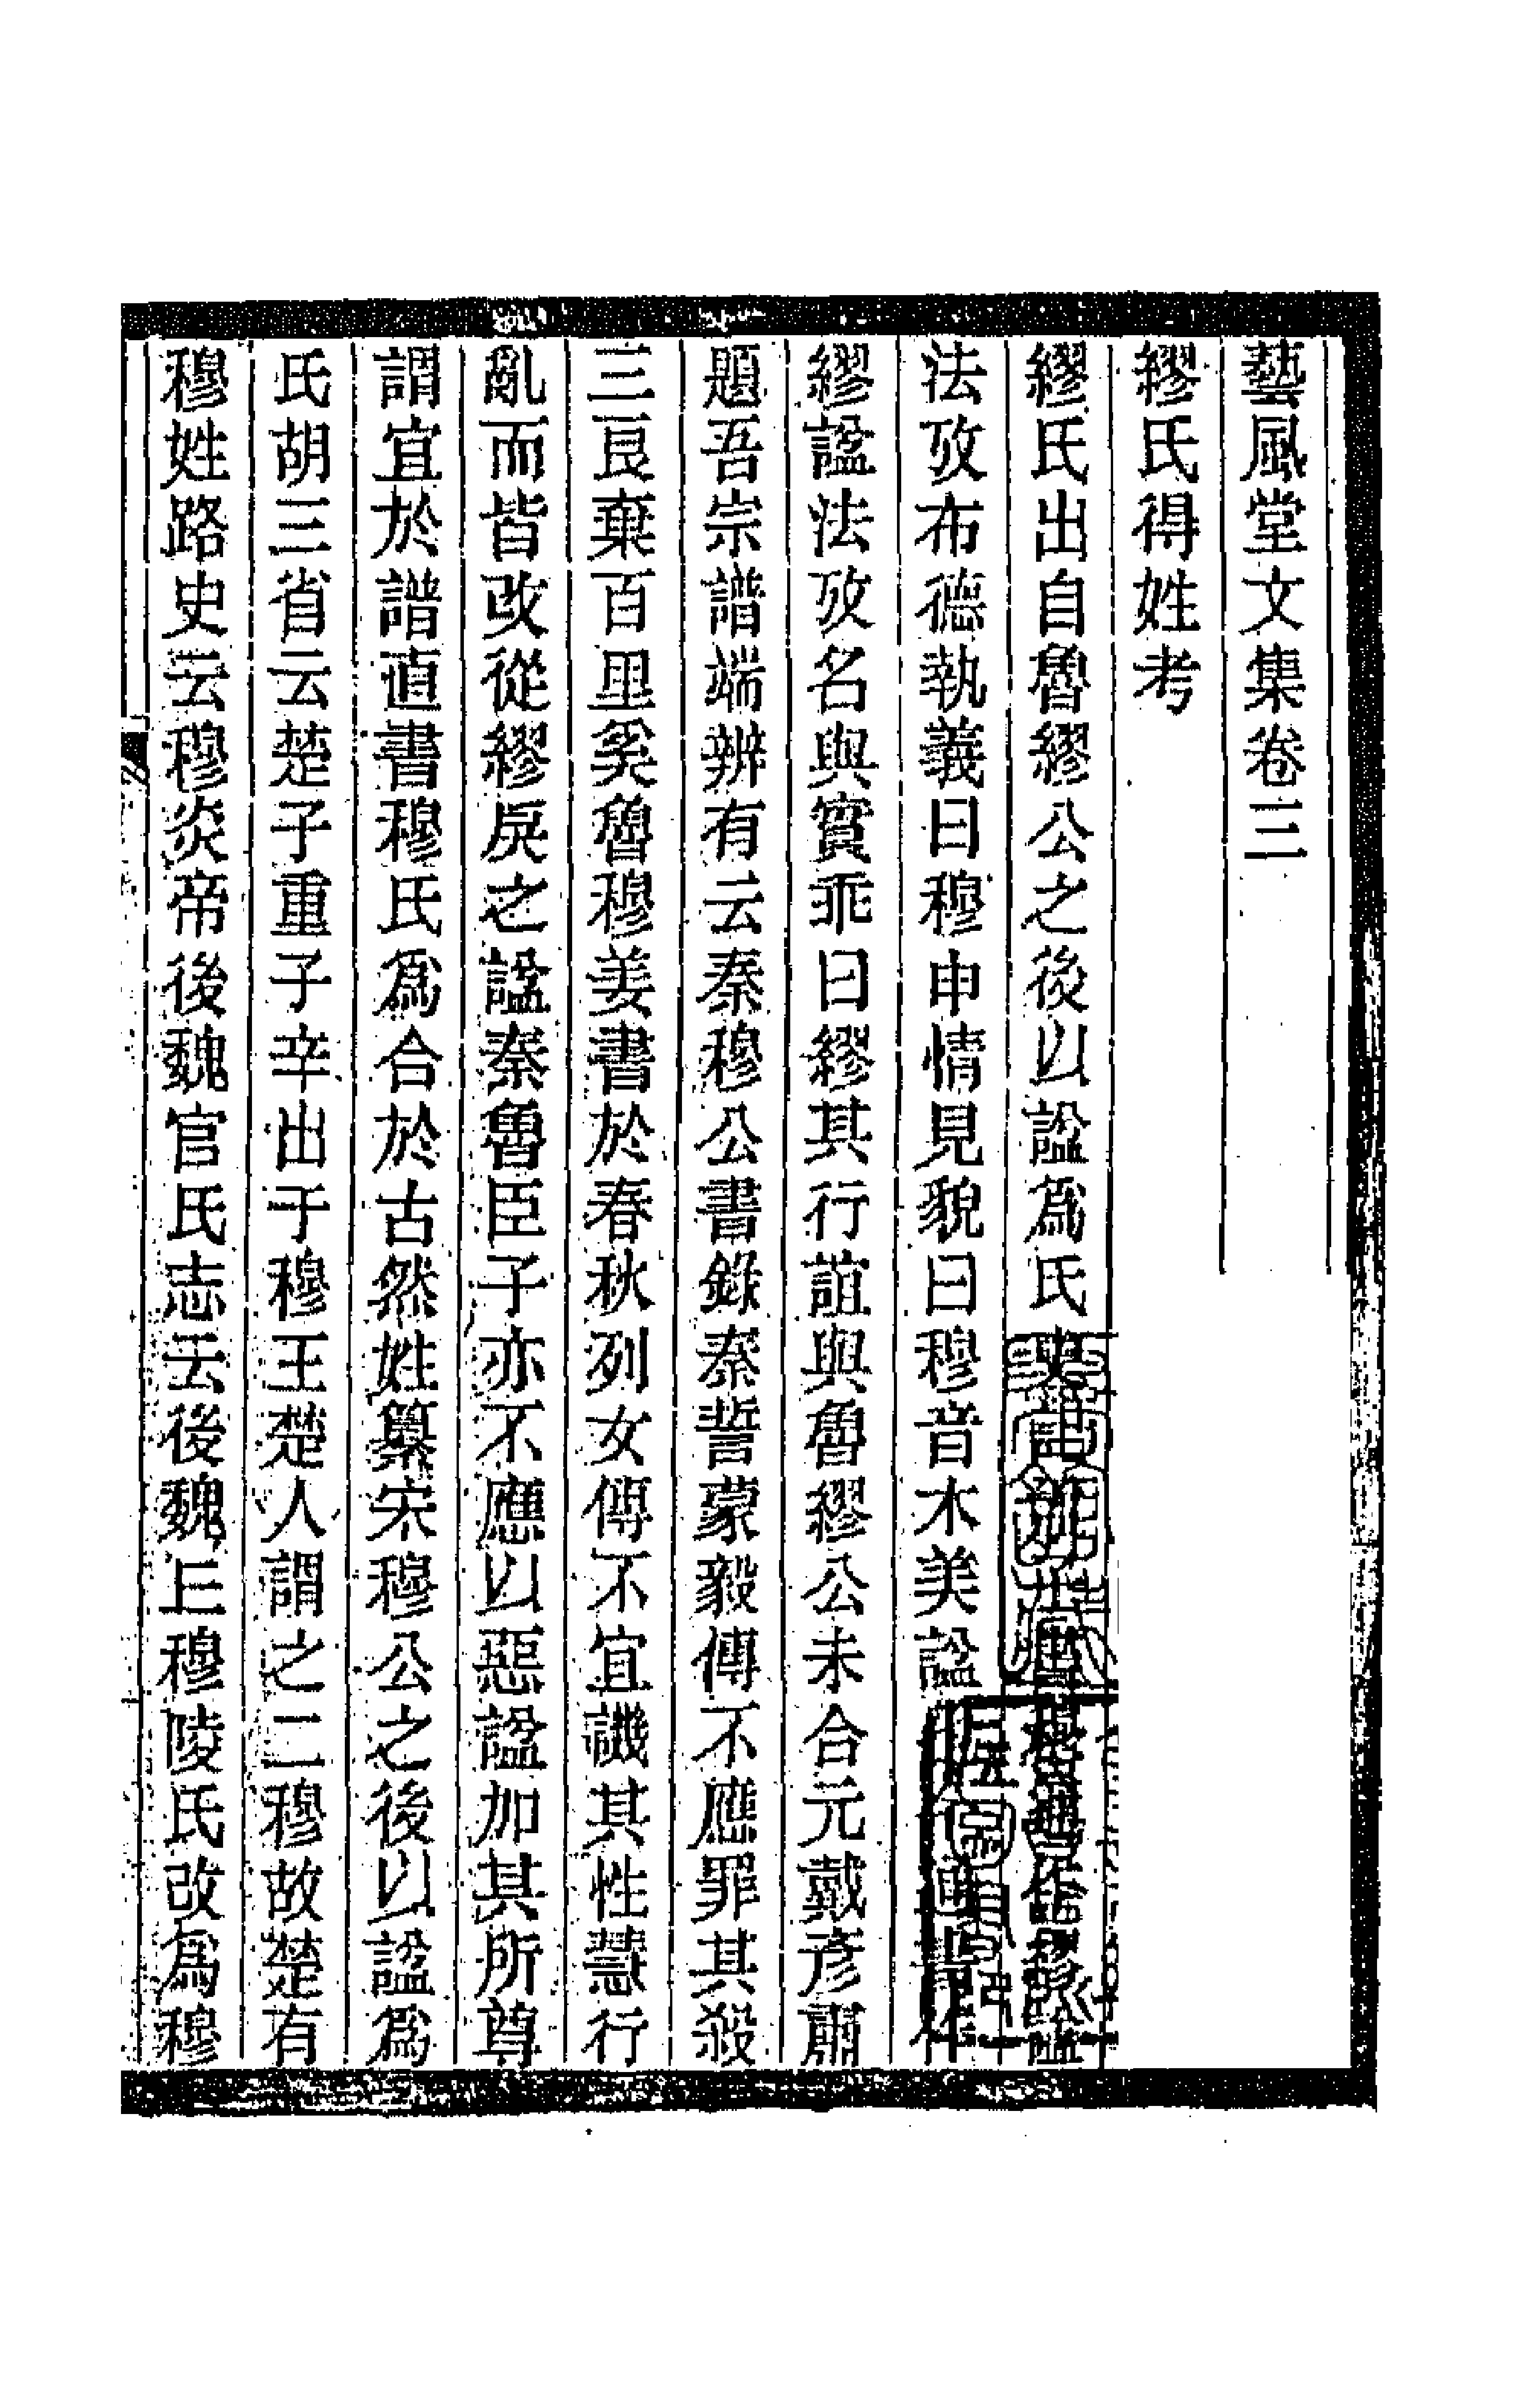 藝風堂文集卷三
繆氏得姓考
繆氏出自魯繆公之後以諡爲氏
法攷布德執義曰穆中情見貌曰穆音木美諡
繆諡法攷名與實乖曰繆其行誼與魯繆公未合元戴彥肅
題吾宗譜端辨有云秦穆公書錄秦誓蒙毅傳不應罪其殺
三良棄百里奚魯穆姜書於春秋列女傳不宜譏其性慧行
亂而皆改從繆戾之諡秦魯臣子亦不應以惡諡加其所尊
謂宜於譜直書穆氏爲合於古然姓纂宋穆公之後以諡爲
氏胡三省云楚子重子辛出于穆王楚人謂之二穆故楚有
穆姓路史云穆炎帝後魏官氏志云後魏丘穆陵氏改爲穆